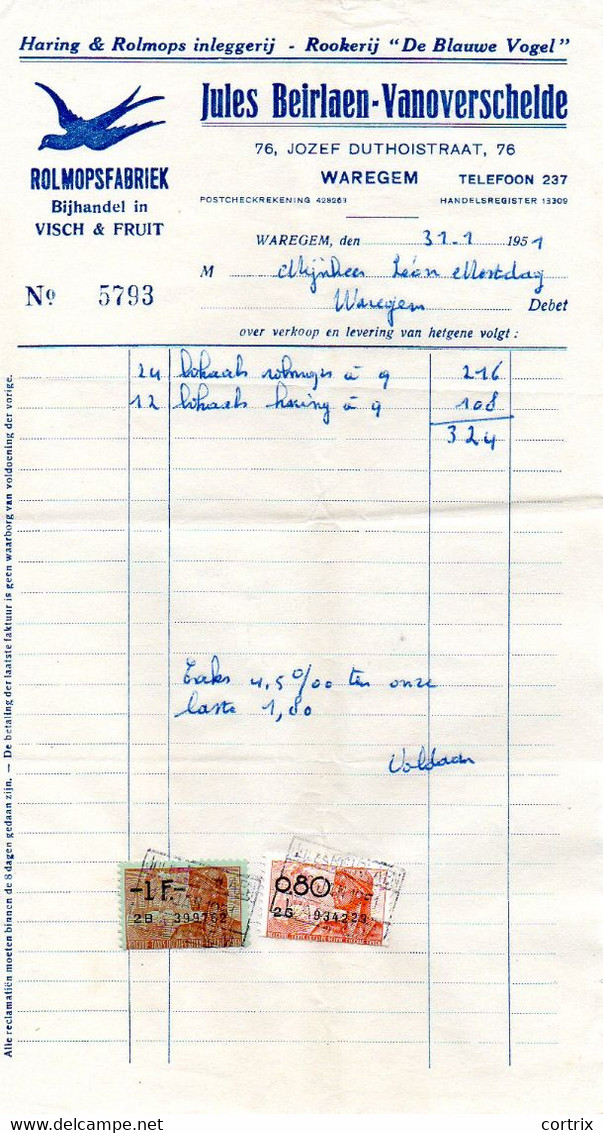 Haring & Rolmops inleggerij - Rookerij "De Blauwe Vogel"
Jules Beirlaen-Vanoverschelde
76, JOZEF DUTHOISTRAAT, 76
WAREGEM TELEFOON 237
POSTCHECKREKENING 428263 HANDELSREGISTER 13309
ROLMOPSFABRIEK
Bijhandel in
VISCH & FRUIT
Nº 5793
WAREGEM, den 31-1 1951
M Mijnheer Léon Mostdag
Waregem Debet
over verkoop en levering van hetgene volgt :
24 bokaals rolmops à 9 216
12 bokaals haring à 9 108
324
Taks 4,5 0/00 ten onze
laste 1,80
Voldaan
-1F.-
2B 399752
0.80
2G 934229
Alle reclamatiën moeten binnen de 8 dagen gedaan zijn. — De betaling der laatste faktuur is geen waarborg van voldoening der vorige.
cortrix